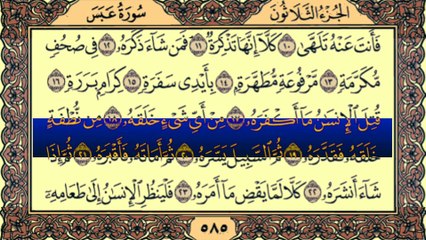 سُورَةُ عَبَسَ
الجُزْءُ الثَّلَاثُونَ
فَأَنتَ عَنْهُ تَلَهَّىٰ ١٠ كَلَّآ إِنَّهَا تَذْكِرَةٌ ١١ فَمَن شَآءَ ذَكَرَهُۥ ١٢ فِى صُحُفٍ
مُّكَرَّمَةٍ ١٣ مَّرْفُوعَةٍ مُّطَهَّرَةٍۭ ١٤ بِأَيْدِى سَفَرَةٍ ١٥ كِرَامٍۭ بَرَرَةٍ ١٦
قُتِلَ ٱلْإِنسَٰنُ مَآ أَكْفَرَهُۥ ١٧ مِنْ أَىِّ شَىْءٍ خَلَقَهُۥ ١٨ مِن نُّطْفَةٍ
خَلَقَهُۥ فَقَدَّرَهُۥ ١٩ ثُمَّ ٱلسَّبِيلَ يَسَّرَهُۥ ٢٠ ثُمَّ أَمَاتَهُۥ فَأَقْبَرَهُۥ ٢١ ثُمَّ إِذَا
شَآءَ أَنشَرَهُۥ ٢٢ كَلَّا لَمَّا يَقْضِ مَآ أَمَرَهُۥ ٢٣ فَلْيَنظُرِ ٱلْإِنسَٰنُ إِلَىٰ طَعَامِهِۦٓ
٥٨٥